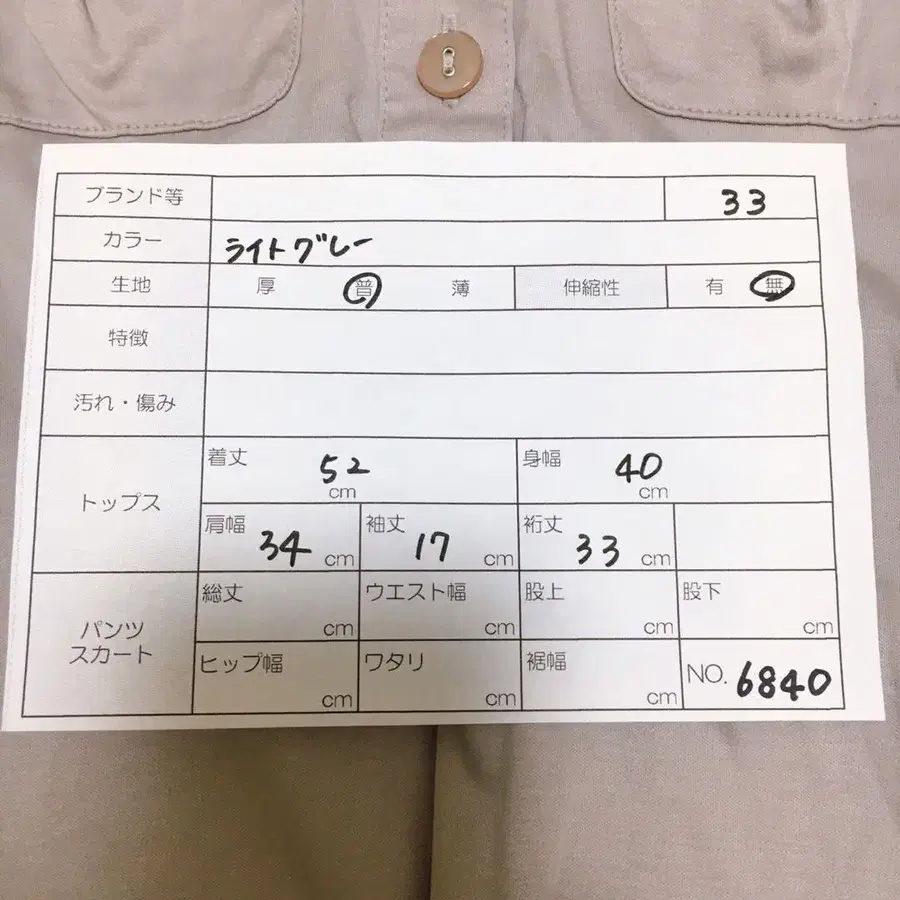 ブランド等 33
カラー ライトグレー
生地 厚 普 薄 伸縮性 有 無
特徴
汚れ・傷み
トップス
着丈 52 cm 身幅 40 cm
肩幅 34 cm 袖丈 17 cm 裄丈 33 cm
パンツ
スカート
総丈 cm ウエスト幅 cm 股上 cm 股下 cm
ヒップ幅 cm ワタリ cm 裾幅 cm NO. 6840